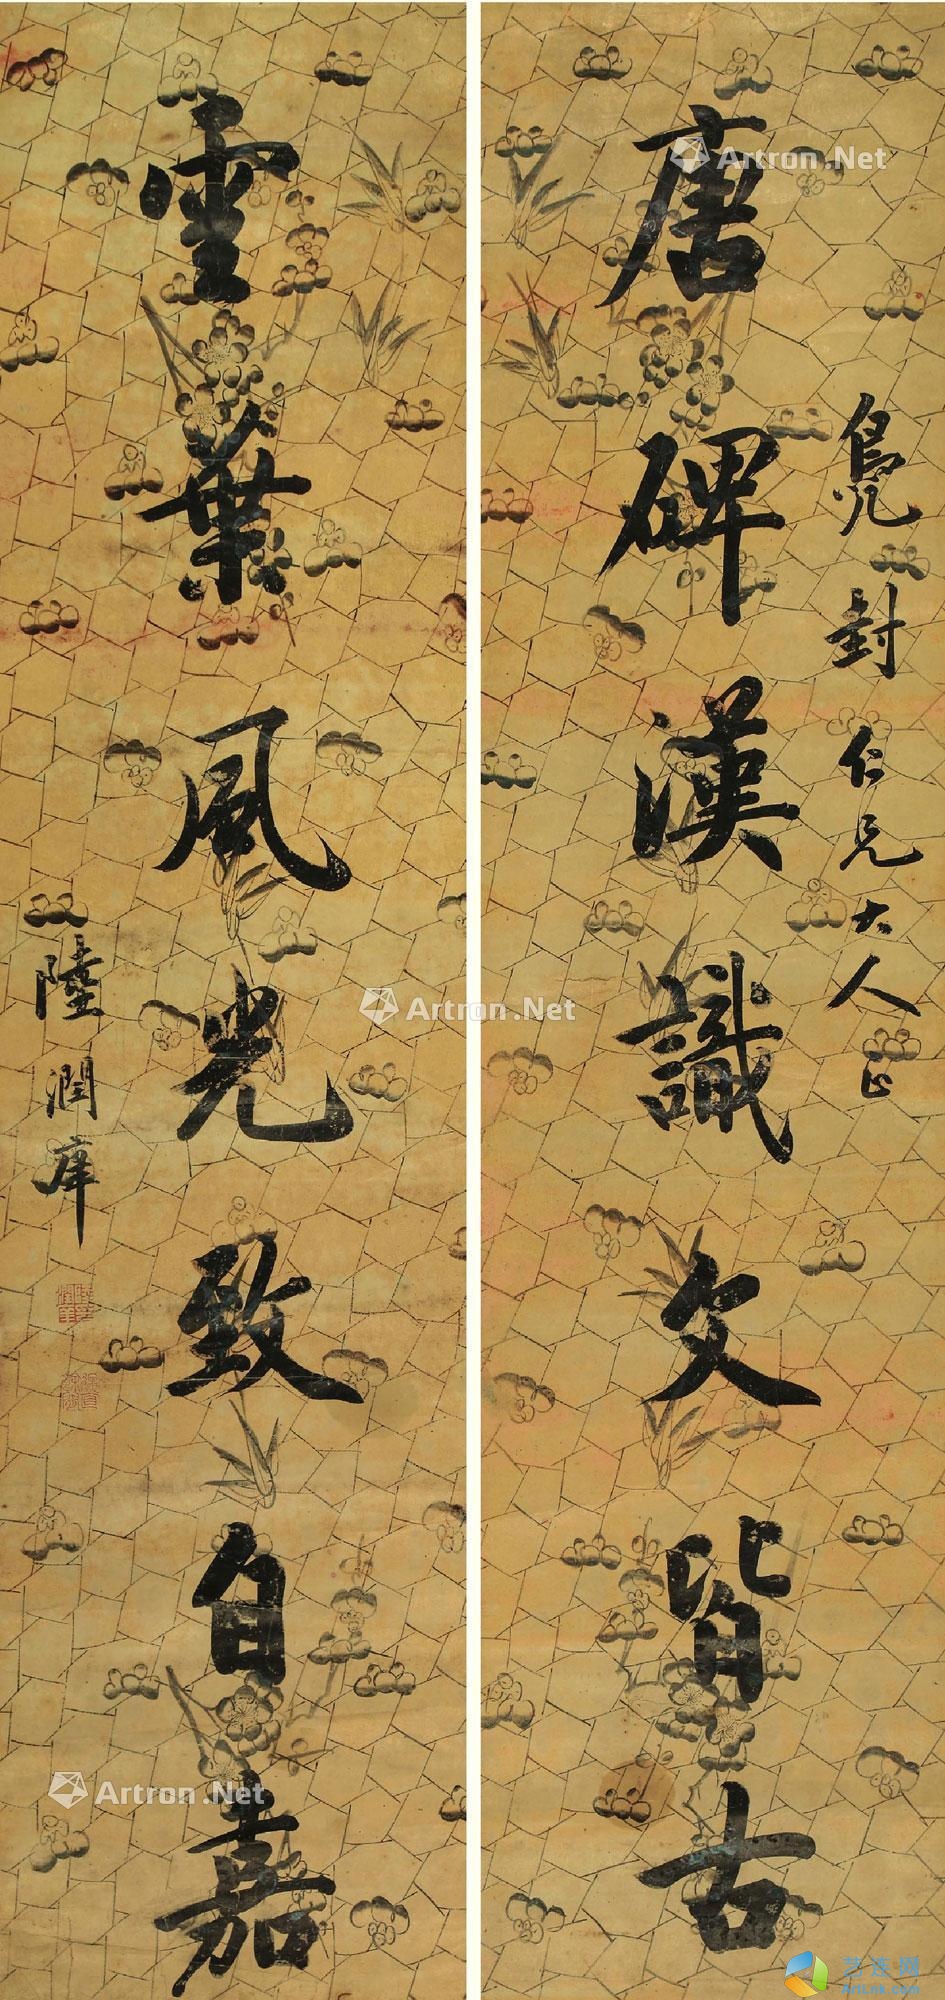 鳧封仁兄大人正
唐碑漢識文皆古
雲葉風光致自嘉
陸潤庠
Artron.Net
Artron.Net
Artron.Net